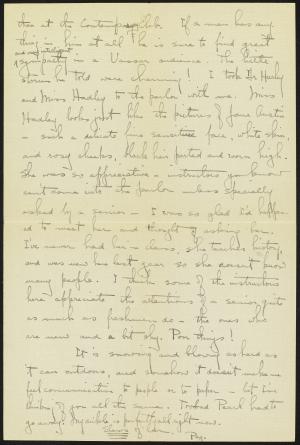 tea at the Contemporary Club. If a man has any
thing in him at all he is sure to find great
and intelligent
sympathy in a Vassar audience. The little
stories he told were charming! I took Dr. Hurley
and Miss Hadley to the parlor with me. Miss
Hadley looks just like the pictures of Jane Austin
– such a delicate line sensitive face, white skin,
and rosy cheeks, black hair parted and worn high.
She was so appreciative – instructors you know
can't come into the parlor unless specially
asked by a senior – I was so glad I'd happen-
ed to meet her and thought of asking her.
I've never had her in class, she teaches history,
and was new here last year so she doesn't know
many people. I think some of the instructors
here appreciate the attentions of a senior quite
as much as freshmen do – the ones who
are new and a bit shy. Poor things!
It is snowing and blowing as hard as
it can outdoors, and somehow it doesn't make me
feel communicative to people or to paper – but I'm
thinking of you all the same. Too bad Pearl had to
go away. My is perfectly all right now.
Peg.